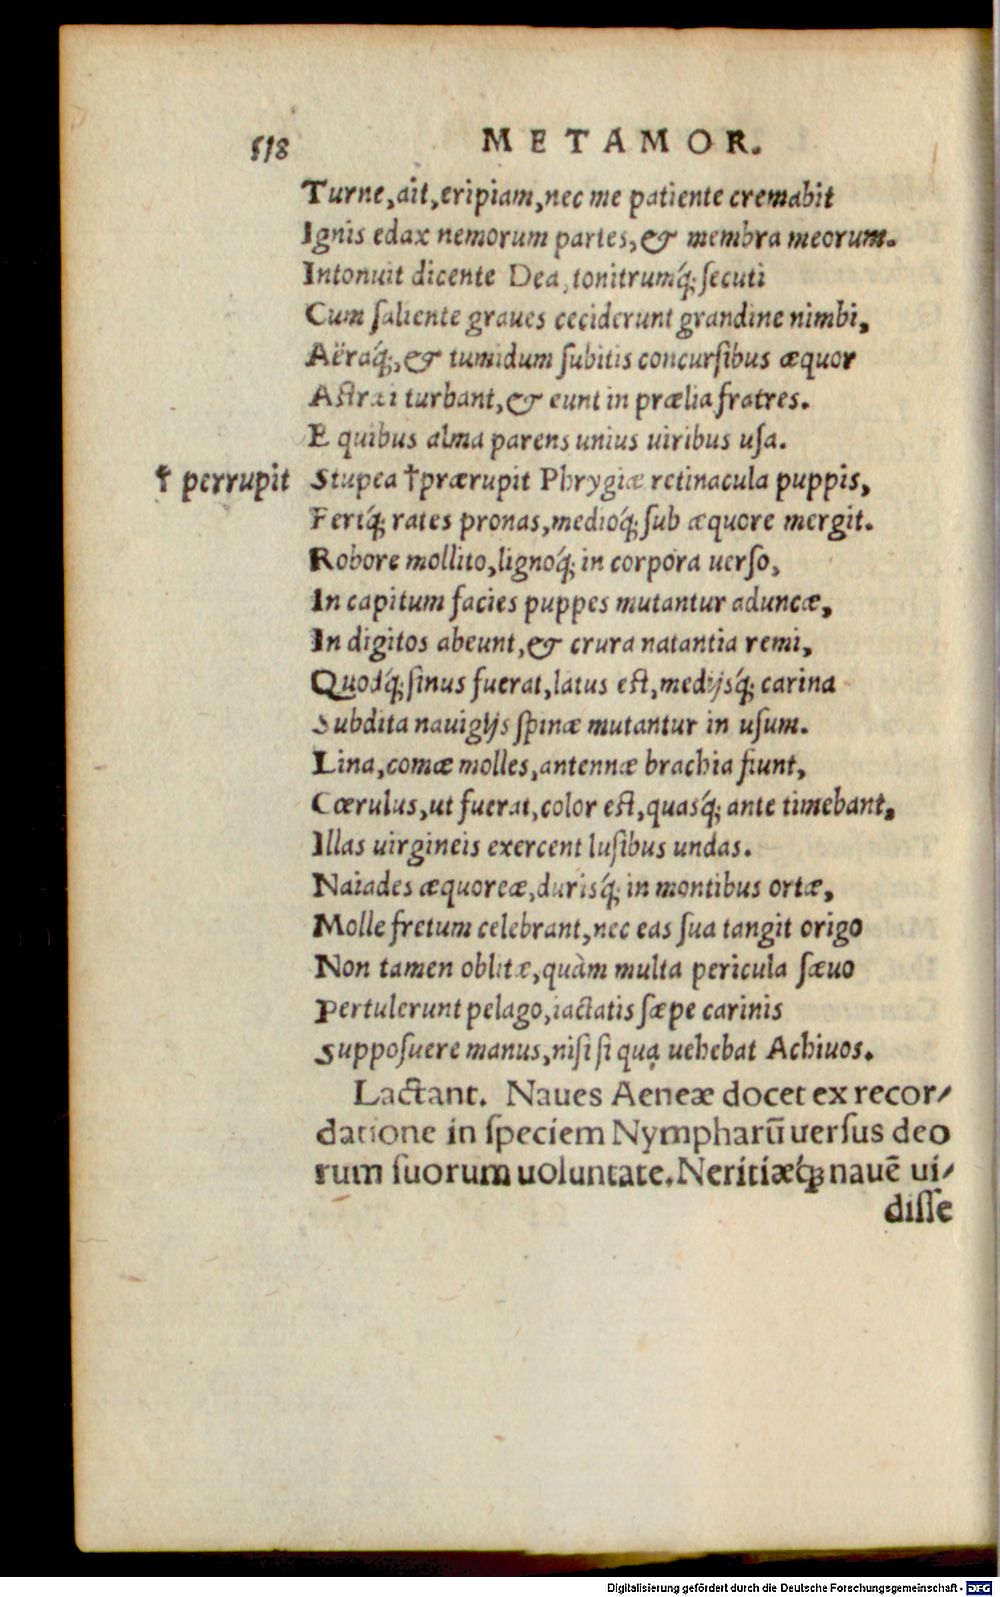 518 METAMOR.
Turne, ait, eripiam, nec me patiente cremabit
Ignis edax nemorum partes, & membra meorum.
Intonuit dicente Dea, tonitrumq́; ſecuti
Cum ſaliente graues ceciderunt grandine nimbi,
Aëraq́;, & tumidum ſubitis concurſibus æquor
Aſtræi turbant, & eunt in prælia fratres.
E quibus alma parens unius uiribus uſa.
† perrupit Stupea †prærupit Phrygiæ retinacula puppis,
Fertq́; rates pronas, medioq́; ſub æquore mergit.
Robore mollito, lignoq́; in corpora uerſo,
In capitum facies puppes mutantur aduncæ,
In digitos abeunt, & crura natantia remi,
Quodq́; ſinus fuerat, latus eſt, medijsq́; carina
Subdita nauigijs ſpinæ mutantur in uſum.
Lina, comæ molles, antennæ brachia fiunt,
Cœrulus, ut fuerat, color eſt, quasq́; ante timebant,
Illas uirgineis exercent luſibus undas.
Naiades æquoreæ, durisq́; in montibus ortæ,
Molle fretum celebrant, nec eas ſua tangit origo
Non tamen oblitæ, quàm multa pericula ſæuo
Pertulerunt pelago, iactatis ſæpe carinis
Suppoſuere manus, niſi ſi qua uehebat Achiuos.
Lactant. Naues Aeneæ docet ex recor/
datione in ſpeciem Nympharū uerſus deo
rum ſuorum uoluntate. Neritiæq́; nauē ui/
diſſe
Digitalisierung gefördert durch die Deutsche Forschungsgemeinschaft - DFG